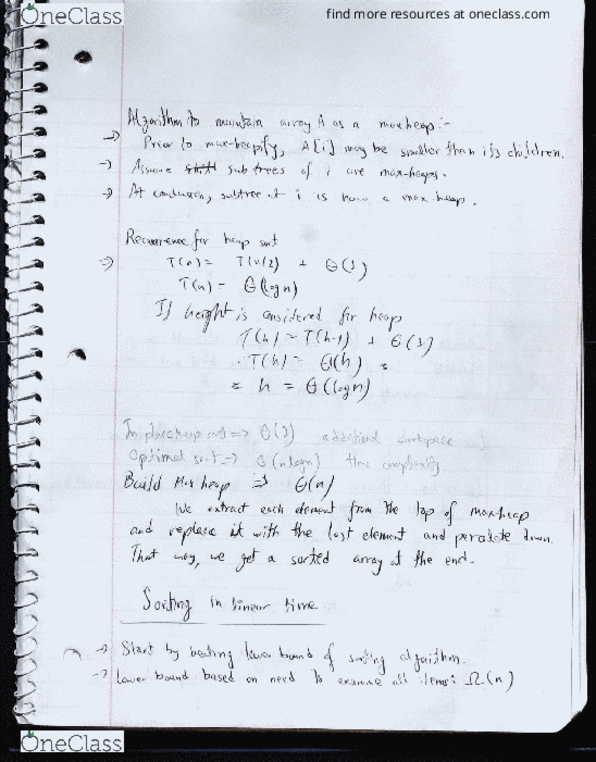 OneClass
find more resources at oneclass.com
Algorithm to maintain array A as a maxheap:-
→ Prior to max-heapify, A[i] may be smaller than its children.
→ Assume sub trees of i are max-heaps.
→ At conclusion, subtree at i is now a max heap.
Recurrence for heap sort
⇒ T(n) = T(n/2) + Θ(1)
T(n) = Θ(logn)
If height is considered for heap
T(h) = T(h-1) + Θ(1)
T(h) = Θ(h)
h = Θ(logn)
In place heap sort => Θ(1) additional workspace
Optimal sort → Θ(nlogn) time complexity
Build Max heap => Θ(n)
We extract each element from the top of maxheap
and replace it with the last element and percolate down.
That way, we get a sorted array at the end.
Sorting in linear time
→ Start by beating lower bound of sorting algorithm.
→ Lower bound based on need to examine all items: Ω(n)
OneClass